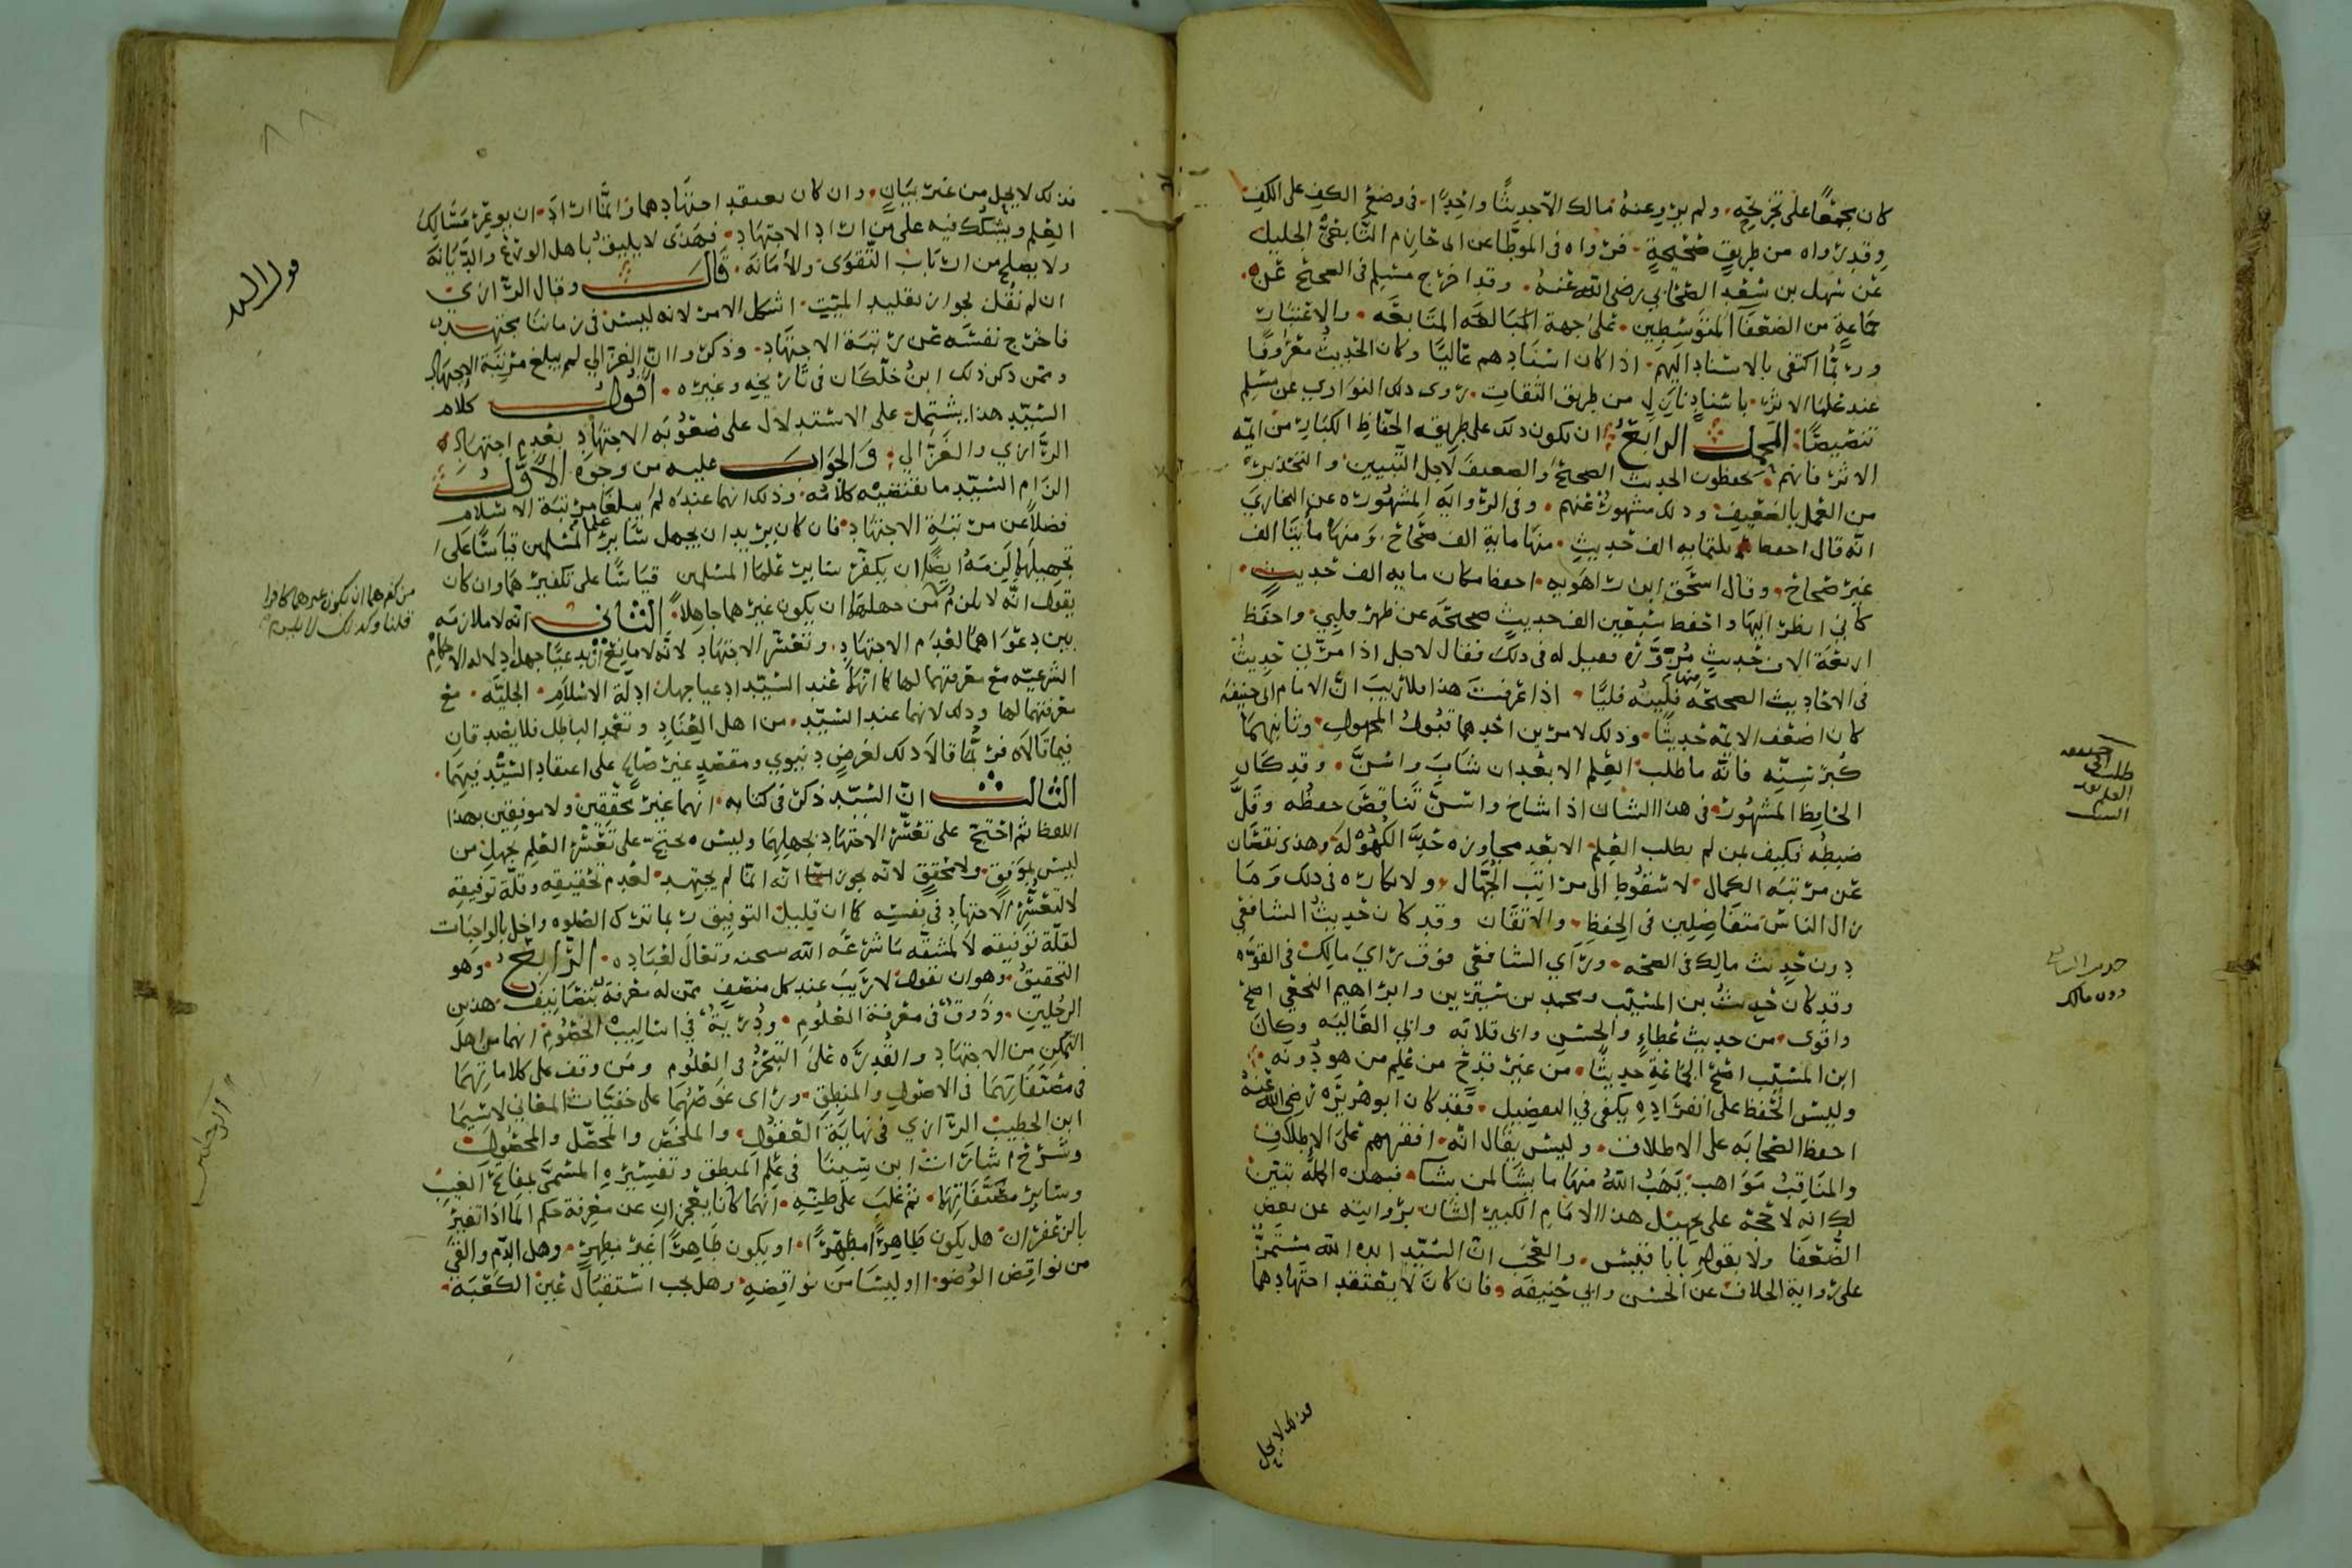 كان مجمعًا على تجريحه، ولم يرو عنه مالك الا حديثًا واحدًا، في وضع الكف على الكف
وقد رواه من طريق صحيحةٍ، فرواه في الموطا عن ابي حازم التابعي الجليل
عن سهل بن سعد الصحابي رضي الله عنه، وقد اخرج مسلم في الصحيح عن
جماعة من الضعفا المتوسطين، على جهة المتابعه، والاعتبار
وربما اكتفى بالاسناد اليهم، اذا كان اسنادهم عاليًا وكان الحديث معروفًا
عند علما الاثر، باسنادٍ نازلٍ من طريق الثقات، روى ذلك النواوي عن مسلم
تنصيصًا، المحمل الرابع ان يكون ذلك على طريقه الحفاظ الكبار من ايمه
الاثر فانهم يحفظون الحديث الصحيح والضعيف لاجل التبيين والتحذير
من العمل بالضعيف وذلك مشهور عنهم، وفي الروايه المشهوره عن البخاري
انه قال احفظ ثلثمايه الف حديثٍ، منها ماية الف صحاح، ومنها مايتا الف
غير صحاح، وقال اسحق ابن راهويه، احفظ مكان مايه الف حديث،
كأني انظر اليها واحفظ سبعين الف حديثٍ صحيحه عن ظهر قلبي، واحفظ
اربعة الاف حديثٍ مزوره فقيل له في ذلك فقال لاجل اذا مر بي حديث
في الاحاديث الصحيحه فليته منها فليًا، اذا عرفت هذا فلا ريب ان الامام ابي حنيفه
كان اضعف الايمه حديثًا، وذلك لامرين احدهما قبول المجهول، وثانيهما
كبر سنه فانه ما طلب العلم الا بعد ان شاب واسن، وقد كان
الحافظ المشهور في هذا الشان اذا شاخ واسن تناقص حفظه وقل
ضبطه فكيف لمن لم يطلب العلم الا بعد مجاوزه حد الكهوله، وهذى نقصان
عن مرتبه الكمال، لا سقوط الى مراتب الجهال، ولا نكاره في ذلك وما
زال الناس متفاضلين في الحفظ، والاتقان وقد كان حديث الشافعي
دون حديث مالك في الصحه، وراي الشافعي فوق راي مالك في القوه
وقد كان حديث بن المسيب ومحمد بن سيرين وابراهيم النخعي اصح
واقوى من حديث عطاءٍ والحسن وابي قلابه وابي العاليه وكان
ابن المسيب اصح الجماعةِ حديثًا، من غير قدح من علم من هو دونه،
وليس الحفظ على انفراده يكفي في التفضيل، فقد كان ابو هريره رضي الله عنه
احفظ الصحابه على الاطلاق، وليس يقال انه افقههم على الاطلاق
والمناقب مواهب يهب الله منها ما يشا لمن يشا، فبهذه الجمله تبين
لك انه لا حجه على تجهيل هذا الامام الكبير الشان بروايته عن بعض
الضعفا ولا بقوله بابا قبيس، والعجب ان السيد ايده الله مستمر
على رواية الخلاف عن الحسن وابي حنيفه، فان كان لا يعتقد اجتهادهما
فذلك لا يحل
حنيفه
طلب ابي
العلم بعد
السن
حديث الشافعي
دون مالك
فذلك لا يحل من غير بيان، وان كان يعتقد اجتهادهما، وانما اراد، ان يوعر مسالك
العلم ويشكك فيه على من اراد الاجتهاد، فهذى لا يليق باهل الورع والديانه
ولا يصلح من ارباب التقوى، والامانه، قال وقال الرازي
ان لم نقل بجواز تقليد الميت، اشكل الامر لانه ليس في زماننا مجتهد
فاخرج نفسه عن رتبة الاجتهاد، وذكروا ان الغزالي لم يبلغ مرتبة الاجتهاد
وممن ذكر ذلك ابن خلكان في تاريخه وغيره، اقول كلام
السيد هذا يشتمل على الاستدلال على صعوبه الاجتهاد بعدم اجتهاد
الرازي والغزالي، والجواب عليه من وجوه الاول
الزام السيد ما يقتضيه كلامه، وذلك انهما عنده لم يبلغا مرتبة الاسلام
فضلاً عن مرتبة الاجتهاد، فان كان يريد ان يجهل ساير علما المسلمين قياسًا على
تجهيلهما لزمه ايضا ان يكفر ساير علما المسلمين قياسًا على تكفيرهما وان كان
يقول انه لا يلزم من جهلهما ان يكون غيرهما جاهلاً، الثاني انه لا ملازمه
بين دعواهما لعدم الاجتهاد، وتعسر الاجتهاد لانه لا مانع ان يدعيا جهل ادلة الاحكام
الشرعيه مع معرفتهما لها كما انهما عند السيد ادعيا جهل ادلة الاسلام، الجليه، مع
معرفتهما لها وذلك لانهما عند السيد، من اهل العناد وتعمد الباطل فلا يصدقان
فيما قالاه فربما قالا ذلك لغرضٍ دنيوي ومقصدٍ غير صالح على اعتقاد السيد فيهما،
الثالث ان السيد ذكر في كتابه، انهما غير محققين ولا موفقين بهذا
اللفظ ثم احتج على تعسر الاجتهاد بجهلهما وليس يحتج على تعسر العلم بجهل من
ليس بموفق، ولا محقق لانه يجوز انه انما لم يجتهد، لعدم تحقيقه وقلة توفيقه
لا لتعسر الاجتهاد في نفسه كما ان قليل التوفيق ربما ترك الصلوه واخل بالواجبات
لقلة توفيقه لا لمشقه ما شرعه الله سبحنه وتعالى لعباده، الرابع، وهو
التحقيق، وهو ان نقول لا ريب عند كل منصف ممن له معرفة بتصانيف هذين
الرجلين، وذوق في معرفة العلوم، ودرية في اساليب الخصوم انهما من اهل
التمكن من الاجتهاد والقدره على التبحر في العلوم ومن وقف على كلاماتهما
في مصنفاتهما في الاصول والمنطق، وراى غوصهما على خفيات المعاني لا سيما
ابن الخطيب الرازي في نهاية العقول، والملخص والمحصل والمحصول
وشرح اشارات ابن سينا في علم المنطق وتفسيره المسمى بمفاتح الغيب
وساير مصنفاتهما، ثم غلب على ظنه، انهما كانا يعجزان عن معرفة حكم الما اذا تغير
بالزعفران هل يكون طاهرًا مطهرًا، او يكون طاهرًا غير مطهرٍ، وهل الدم والقي
من نواقض الوضو، او ليسا من نواقضه، وهل يجب استقبال عين الكعبة،
قول السيد
من كفرهما ان يكون غيرهما كافرا
قلنا وكذلك لا يلزم